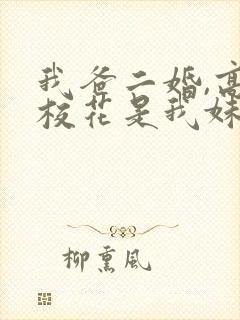 我爸二婚,高
校花是我妹
柳熏风